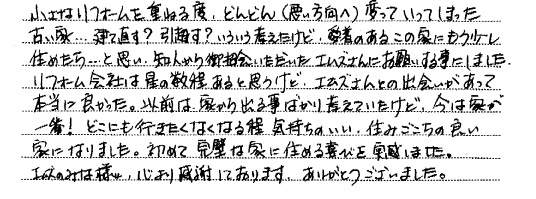 小さなリフォームを重ねる度、どんどん(悪い方向へ)変っていってしまった
古い家…建て直す?引越す?いろいろ考えたけど、愛着のあるこの家にもう少し
住めたら…と思い、知人から御紹介いただいたエムズさんにお願いする事にしました。
リフォーム会社は星の数程あると思うけど、エムズさんとの出会いがあって
本当に良かった。以前は家から出る事ばかり考えていたけど、今は家が
一番!どこにも行きたくなくなる程気持ちのいい、住みごこちの良い
家になりました。初めて完璧な家に住める喜びを実感しました。
エムズのみな様、心より感謝しております。ありがとうございました。